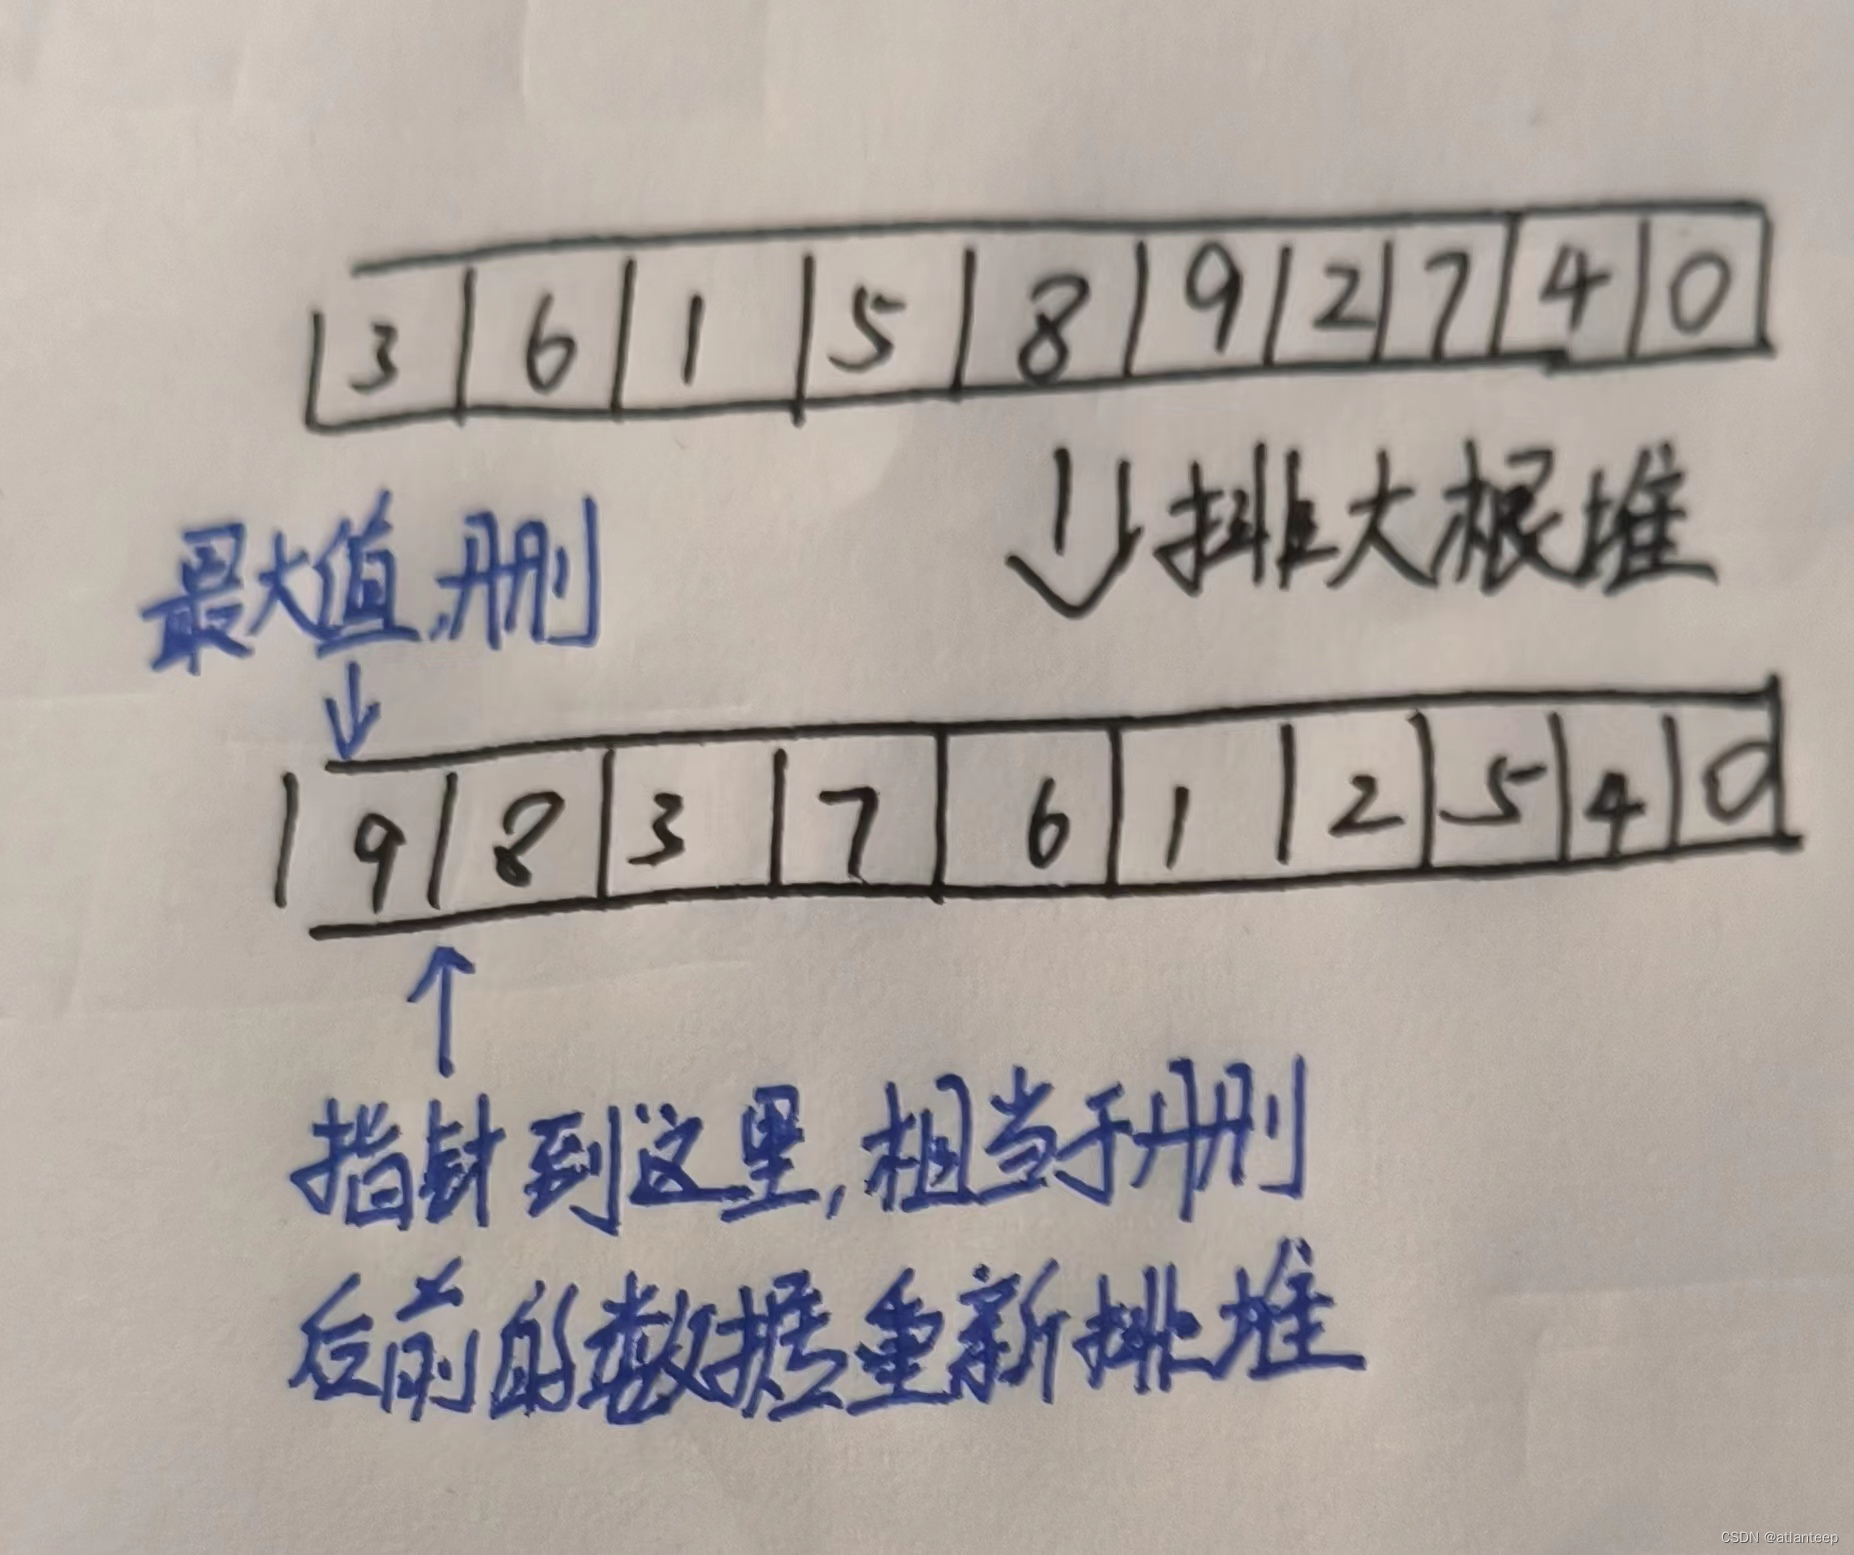 3 6 1 5 8 9 2 7 4 0
排大根堆
最大值,删
9 8 3 7 6 1 2 5 4 0
指针到这里,相当于删
后前的数据重新排堆
CSDN @atlanteep